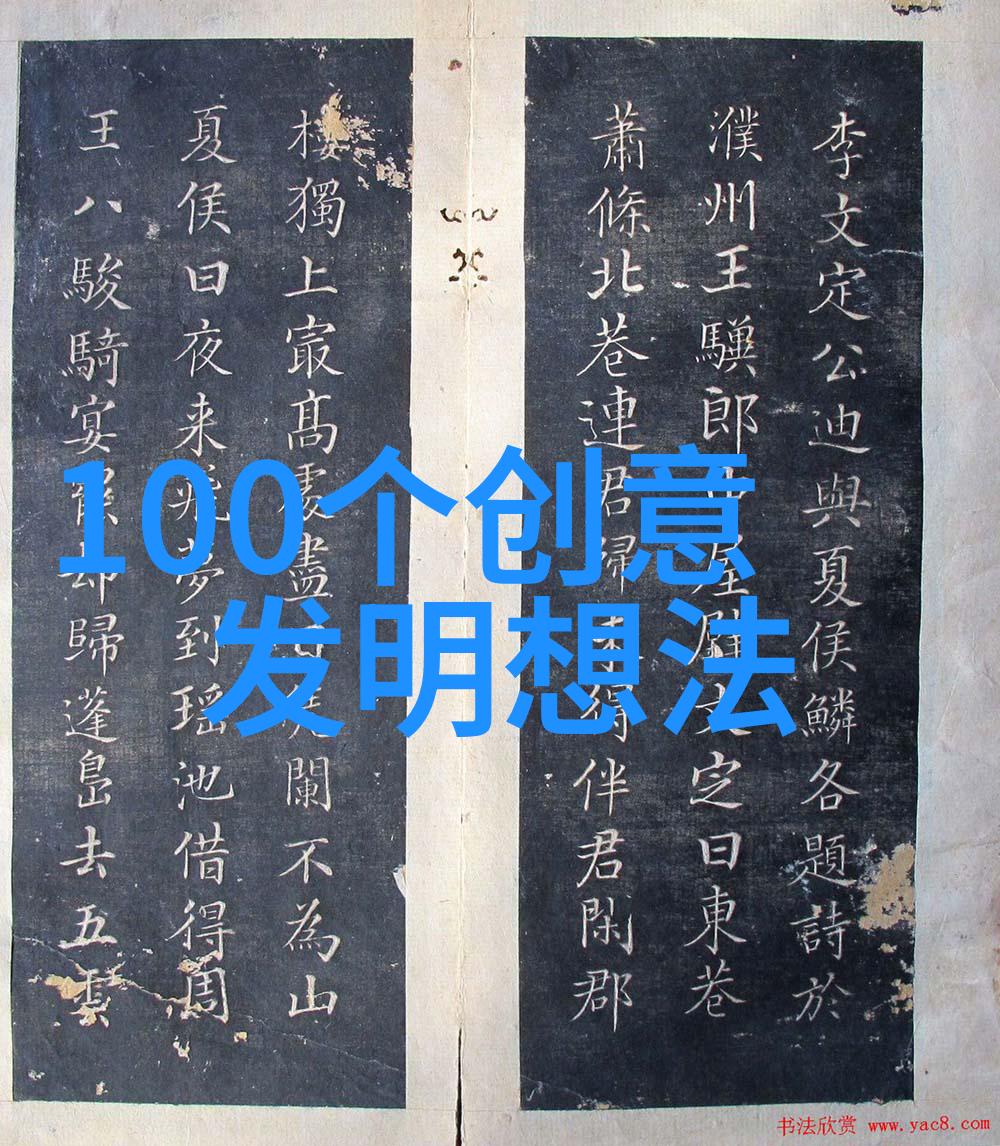 100个创意
发明想法
李文定公迪與夏侯鱗各題詩於
濮州王驥郎中屋文定曰東巷
蕭條北巷連君歸得伴君閑郡
樓獨上㝡高處盡闌不為山
夏侯曰夜来飛夢到瑶池借得周
王八駿騎宴罷却歸蓬島去五雲
书法欣赏 www.yac8.com